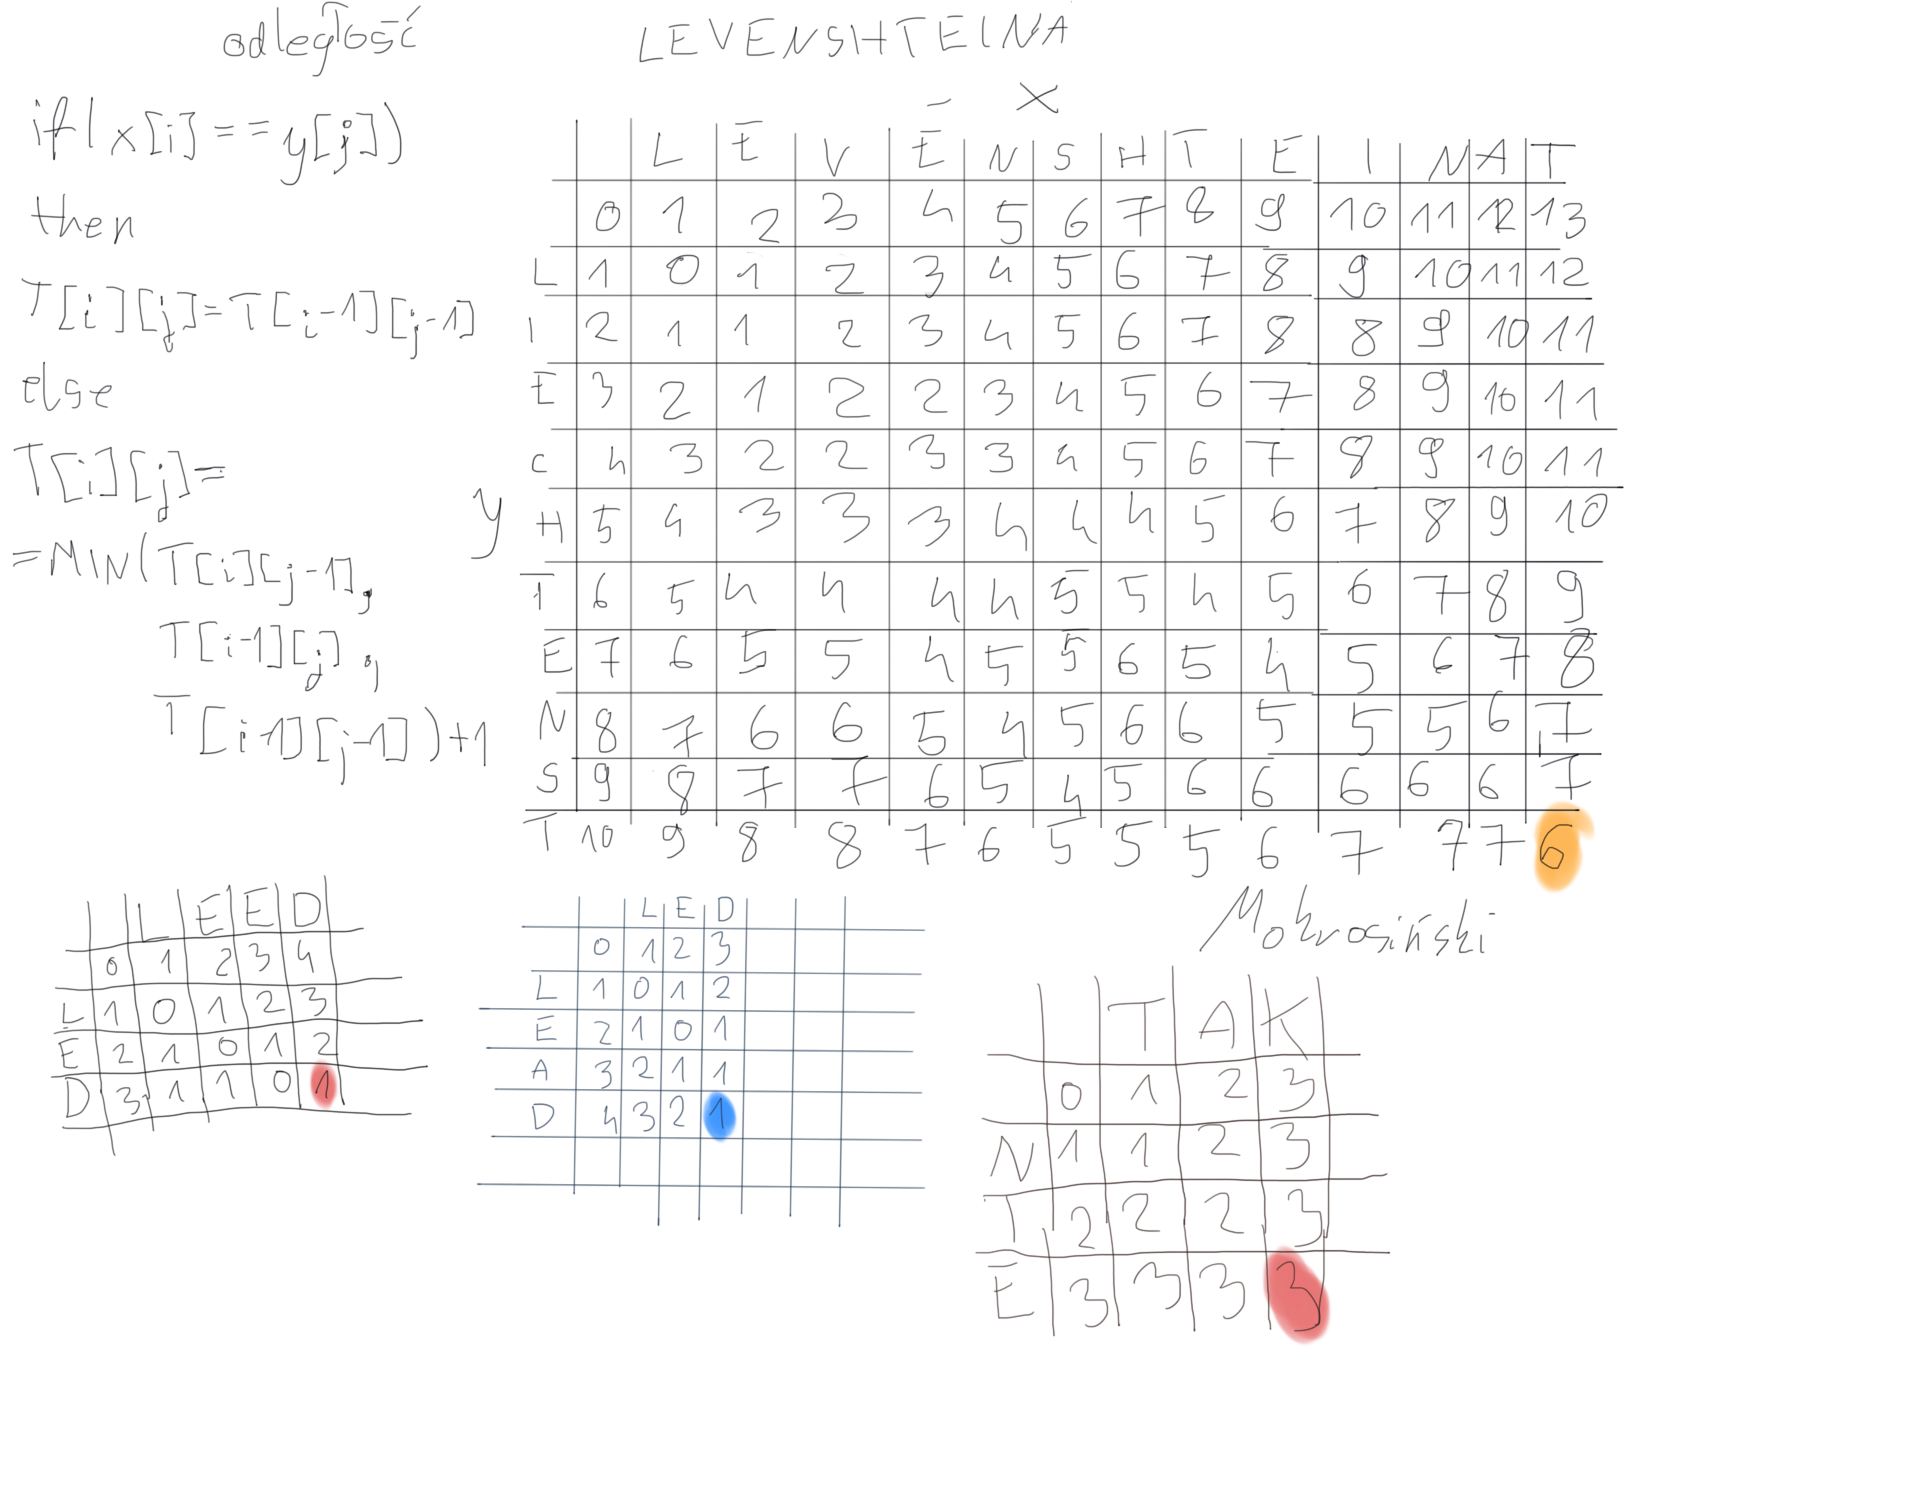 odległość
LEVENSHTEINA
if(x[i]==y[j])
then
T[i][j]=T[i-1][j-1]
else
T[i][j]=
=MIN(T[i][j-1],
T[i-1][j],
T[i-1][j-1])+1
X
y
L E V E N S H T E I N A T
0 1 2 3 4 5 6 7 8 9 10 11 12 13
L 1 0 1 2 3 4 5 6 7 8 9 10 11 12
I 2 1 1 2 3 4 5 6 7 8 8 9 10 11
E 3 2 1 2 2 3 4 5 6 7 8 9 10 11
C 4 3 2 2 3 3 4 5 6 7 8 9 10 11
H 5 4 3 3 3 4 4 4 5 6 7 8 9 10
T 6 5 4 4 4 4 5 5 4 5 6 7 8 9
E 7 6 5 5 4 5 5 6 5 4 5 6 7 8
N 8 7 6 6 5 4 5 6 6 5 5 5 6 7
S 9 8 7 7 6 5 4 5 6 6 6 6 6 7
T 10 9 8 8 7 6 5 5 5 6 7 7 7 6
L E E D
0 1 2 3 4
L 1 0 1 2 3
E 2 1 0 1 2
D 3 1 1 0 1
L E D
0 1 2 3
L 1 0 1 2
E 2 1 0 1
A 3 2 1 1
D 4 3 2 1
Mokrosiński
T A K
0 1 2 3
N 1 1 2 3
T 2 2 2 3
E 3 3 3 3